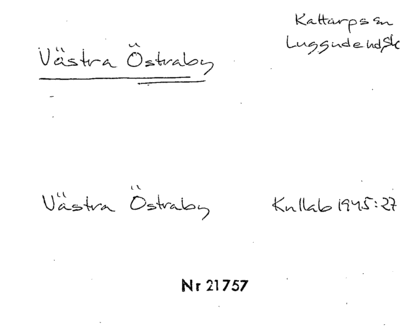 Västra Östraby
Kattarps sn
Luggude hd, Sk
Västra Östraby
Kullab 1945:27
Nr 21757